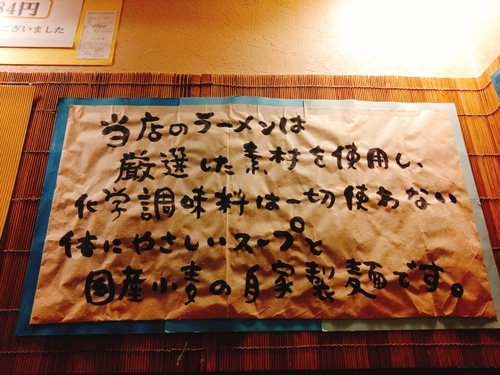 84円
ございました
当店のラーメンは
厳選した素材を使用し、
化学調味料は一切使わない
体にやさしいスープと
国産小麦の自家製麺です。